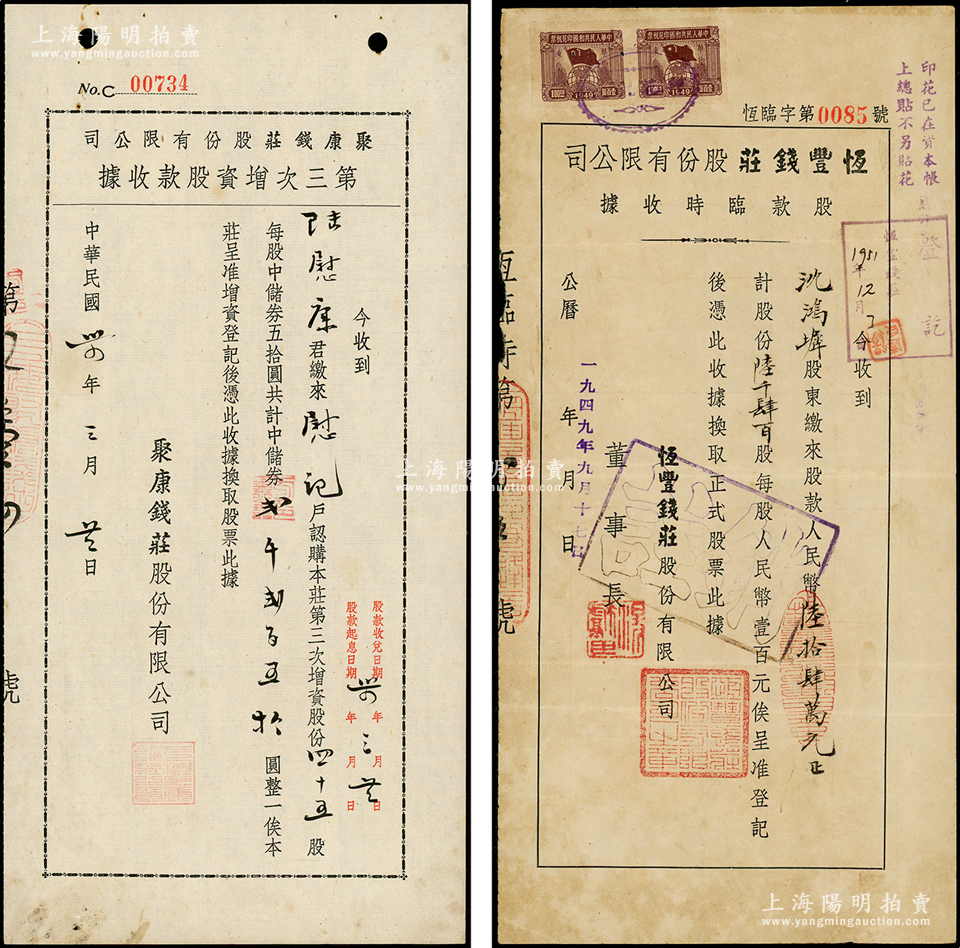 上海陽明拍賣
www.yangmingauction.com
No.C 00734
聚康錢莊股份有限公司
第三次增資股款收據
今收到
陆慰康君繳來慰記戶認購本莊第三次增資股份四十五股
每股中儲券五拾圓共計中儲券弍千弍百五拾圓整一俟本
莊呈准增資登記後憑此收據換取股票此據
聚康錢莊股份有限公司
中華民國 年三月 日
股款收兌日期 年 月 日
股款起息日期 年 月 日
號
中華人民共和國印花稅票
1949
中華人民共和國印花稅票
1949
印花已在資本帳
上總貼不另貼花
恆臨字第0085號
恆豐錢莊股份有限公司
股款臨時收據
1951年12月
登記
今收到
沈鴻墀股東繳來股款人民幣陸拾肆萬元正
計股份陸千肆百股每股人民幣壹百元俟呈准登記
後憑此收據換取正式股票此據
恆豐錢莊股份有限公司
董事長
公曆 年 月 日
一九四九年九月十七日
恆臨字第
號
上海陽明拍賣
www.yangmingauction.com
上海陽明拍賣
www.yangmingauction.com